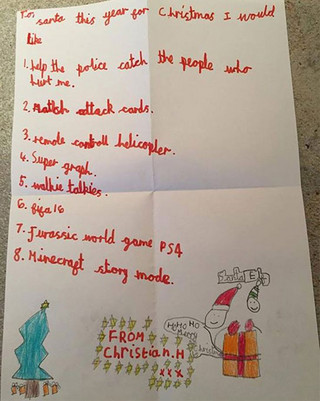 To: santa this year for Christmas I would
like
1. help the police catch the people who
hurt me.
2. Match attack cards.
3. remote controll helicopter.
4. Super graph.
5. walkie talkies.
6. fifa 16
7. Jurassic world game PS4
8. Minecraft story mode.
HoHoHo
merry
FROM
Christian.H
xxx